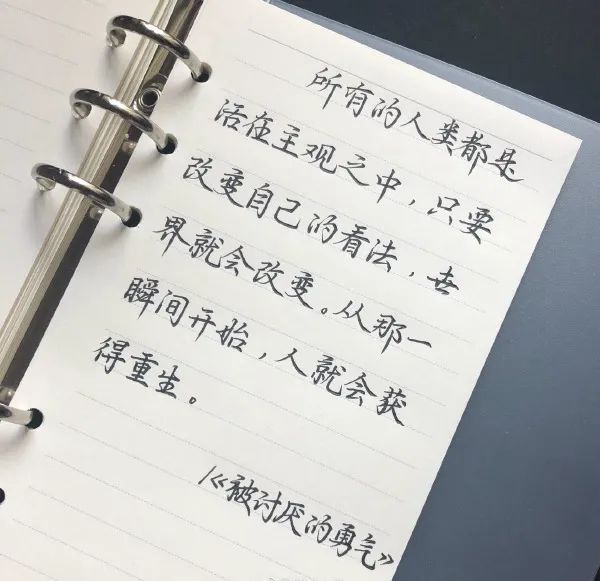 所有的人类都是
活在主观之中，只要
改变自己的看法，世
界就会改变。从那一
瞬间开始，人就会获
得重生。
/《被讨厌的勇气》